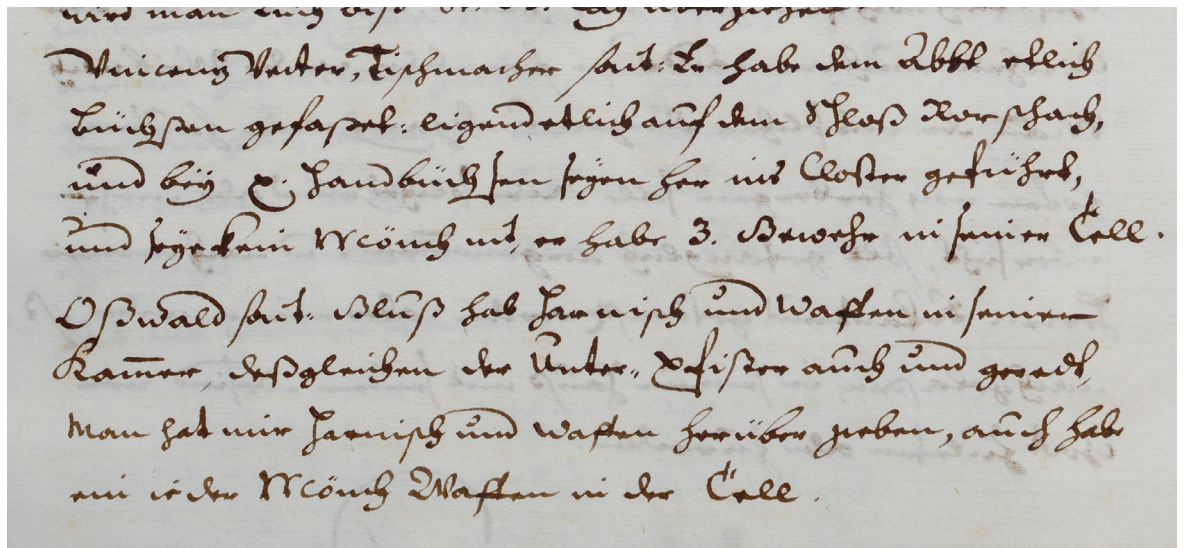 Vincentz Veiter, Tischmacher sait: Er habe dem Abbt etlich
büchssen gefasset: ligend etlich auf dem Schloß Rorschach,
und bey x. handbüchssen seyen her ins Closter geführt,
und seye kein Mönch nit, er habe 3. Gewehr in seiner Cell.
Oßwald sait: Bluß hab Harnisch und Waffen in seiner
Kam̄er, deßgleichen der Unter-Pfister auch und geredt,
man hat mir Harnisch und waffen herüber geben, auch habe
ein ieder Mönch Waffen in der Cell.